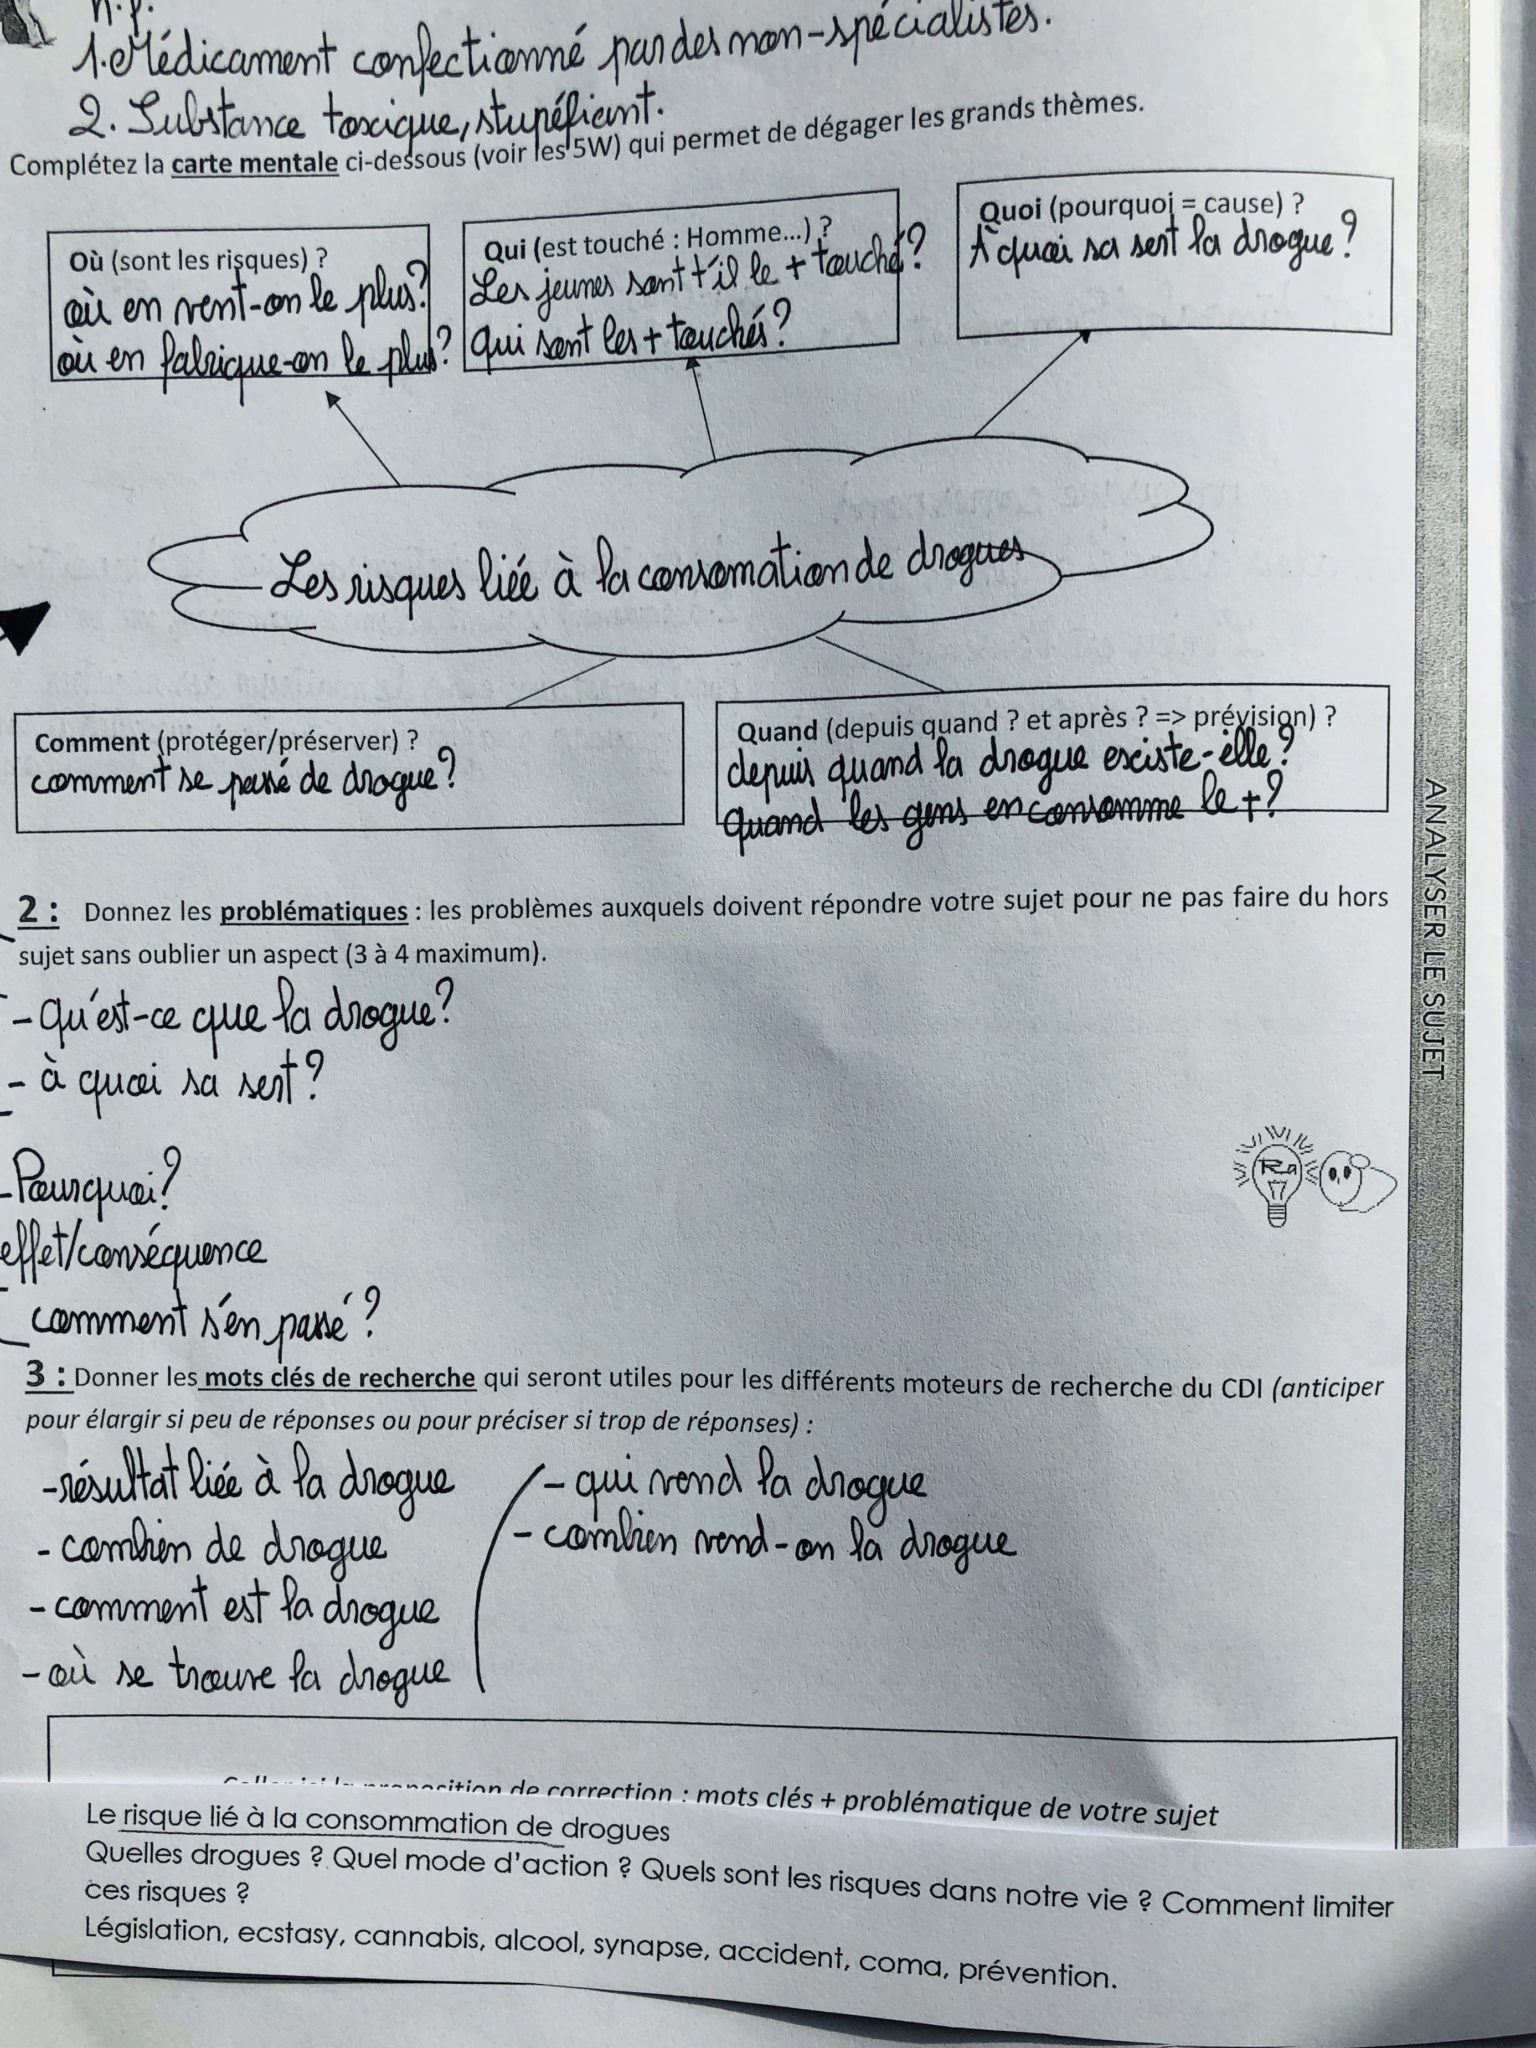 n.f.
1. Médicament confectionné par des non-spécialistes.
2. Substance toxique, stupéfiant.
Complétez la carte mentale ci-dessous (voir les 5W) qui permet de dégager les grands thèmes.
Où (sont les risques) ?
où en vent-on le plus?
où en fabrique-on le plus?
Qui (est touché : Homme...) ?
Les jeunes sont t'il le + touché?
qui sont les + touchés?
Quoi (pourquoi = cause) ?
À quoi sa sert la drogue?
Les risques liée à la consomation de drogues
Comment (protéger/préserver) ?
comment se passé de drogue?
Quand (depuis quand ? et après ? => prévision) ?
depuis quand la drogue exciste-elle?
quand les gens en consomme le +?
ANALYSER LE SUJET
2 : Donnez les problématiques : les problèmes auxquels doivent répondre votre sujet pour ne pas faire du hors
sujet sans oublier un aspect (3 à 4 maximum).
- Qu'est-ce que la drogue?
- à quoi sa sert?
- Pourquoi?
effet/conséquence
comment s'en passé?
3 : Donner les mots clés de recherche qui seront utiles pour les différents moteurs de recherche du CDI (anticiper
pour élargir si peu de réponses ou pour préciser si trop de réponses) :
- résultat liée à la drogue
- combien de drogue
- comment est la drogue
- où se trouve la drogue
- qui vend la drogue
- combien vend-on la drogue
proposition de correction : mots clés + problématique de votre sujet
Le risque lié à la consommation de drogues
Quelles drogues ? Quel mode d'action ? Quels sont les risques dans notre vie ? Comment limiter
ces risques ?
Législation, ecstasy, cannabis, alcool, synapse, accident, coma, prévention.